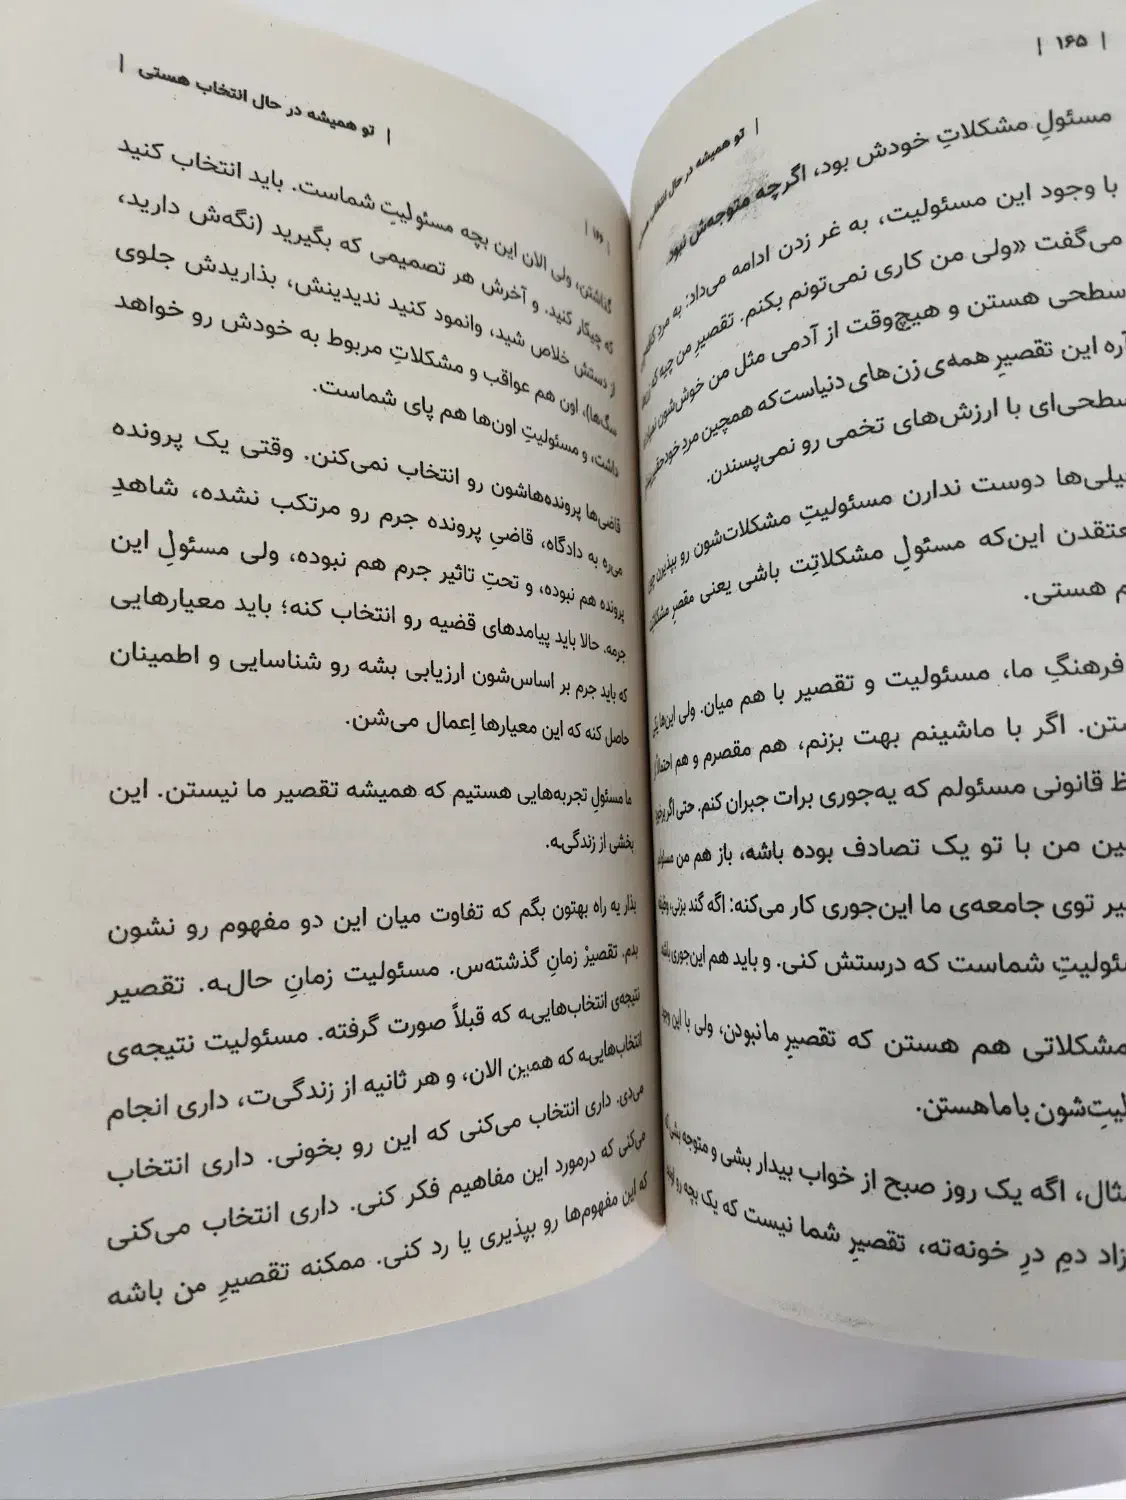 | ۱۶۵ |
| تو همیشه در حال انتخاب
مسئولِ مشکلاتِ خودش بود، اگرچه متوجه‌ش نبود.
با وجود این مسئولیت، به غر زدن ادامه می‌داد؛ به مردِ
می‌گفت «ولی من کاری نمی‌تونم بکنم. تقصیرِ من چیه که
سطحی هستن و هیچ‌وقت از آدمی مثل من خوش‌شون
آره این تقصیرِ همه‌ی زن‌های دنیاست که همچین مردِ
سطحی‌ای با ارزش‌های تخمی رو نمی‌پسندن.
دوست ندارن مسئولیتِ مشکلات‌شون رو بپذیرن چون
این‌که مسئولِ مشکلاتِت باشی یعنی مقصرِ
هستی.
فرهنگِ ما، مسئولیت و تقصیر با هم میان. ولی این‌ها
اگر با ماشینم بهت بزنم، هم مقصرم و هم
قانونی مسئولم که یه‌جوری برات جبران کنم. حتی اگر
من با تو یک تصادف بوده باشه، باز هم من
توی جامعه‌ی ما این‌جوری کار می‌کنه: اگه گند بزنی،
شماست که درستش کنی. و باید هم این‌جوری باشه.
مشکلاتی هم هستن که تقصیرِ ما نبودن، ولی با این
با ما هستن.
اگه یک روز صبح از خواب بیدار بشی و متوجه بشی که
دمِ درِ خونه‌ته، تقصیرِ شما نیست که یک بچه رو
| تو همیشه در حال انتخاب هستی |
| ۱۶۶ |
گذاشتن، ولی الان این بچه مسئولیتِ شماست. باید انتخاب کنید
که چیکار کنید. و آخرش هر تصمیمی که بگیرید (نگه‌ش دارید،
از دستش خلاص شید، وانمود کنید ندیدینش، بذاریدش جلوی
سگ‌ها)، اون هم عواقب و مشکلاتِ مربوط به خودش رو خواهد
داشت، و مسئولیتِ اون‌ها هم پای شماست.
قاضی‌ها پرونده‌هاشون رو انتخاب نمی‌کنن. وقتی یک پرونده
می‌ره به دادگاه، قاضیِ پرونده جرم رو مرتکب نشده، شاهدِ
پرونده هم نبوده، و تحتِ تاثیر جرم هم نبوده، ولی مسئولِ این
جرمه. حالا باید پیامدهای قضیه رو انتخاب کنه؛ باید معیارهایی
که باید جرم بر اساس‌شون ارزیابی بشه رو شناسایی و اطمینان
حاصل کنه که این معیارها اِعمال می‌شن.
ما مسئولِ تجربه‌هایی هستیم که همیشه تقصیر ما نیستن. این
بخشی از زندگی‌ـه.
بذار یه راه بهتون بگم که تفاوت میان این دو مفهوم رو نشون
بدم. تقصیرْ زمانِ گذشته‌س. مسئولیت زمانِ حال‌ـه. تقصیر
نتیجه‌ی انتخاب‌هایی‌ـه که قبلاً صورت گرفته. مسئولیت نتیجه‌ی
انتخاب‌هایی‌ـه که همین الان، و هر ثانیه از زندگی‌ت، داری انجام
می‌دی. داری انتخاب می‌کنی که این رو بخونی. داری انتخاب
می‌کنی که درمورد این مفاهیم فکر کنی. داری انتخاب می‌کنی
که این مفهوم‌ها رو بپذیری یا رد کنی. ممکنه تقصیرِ من باشه